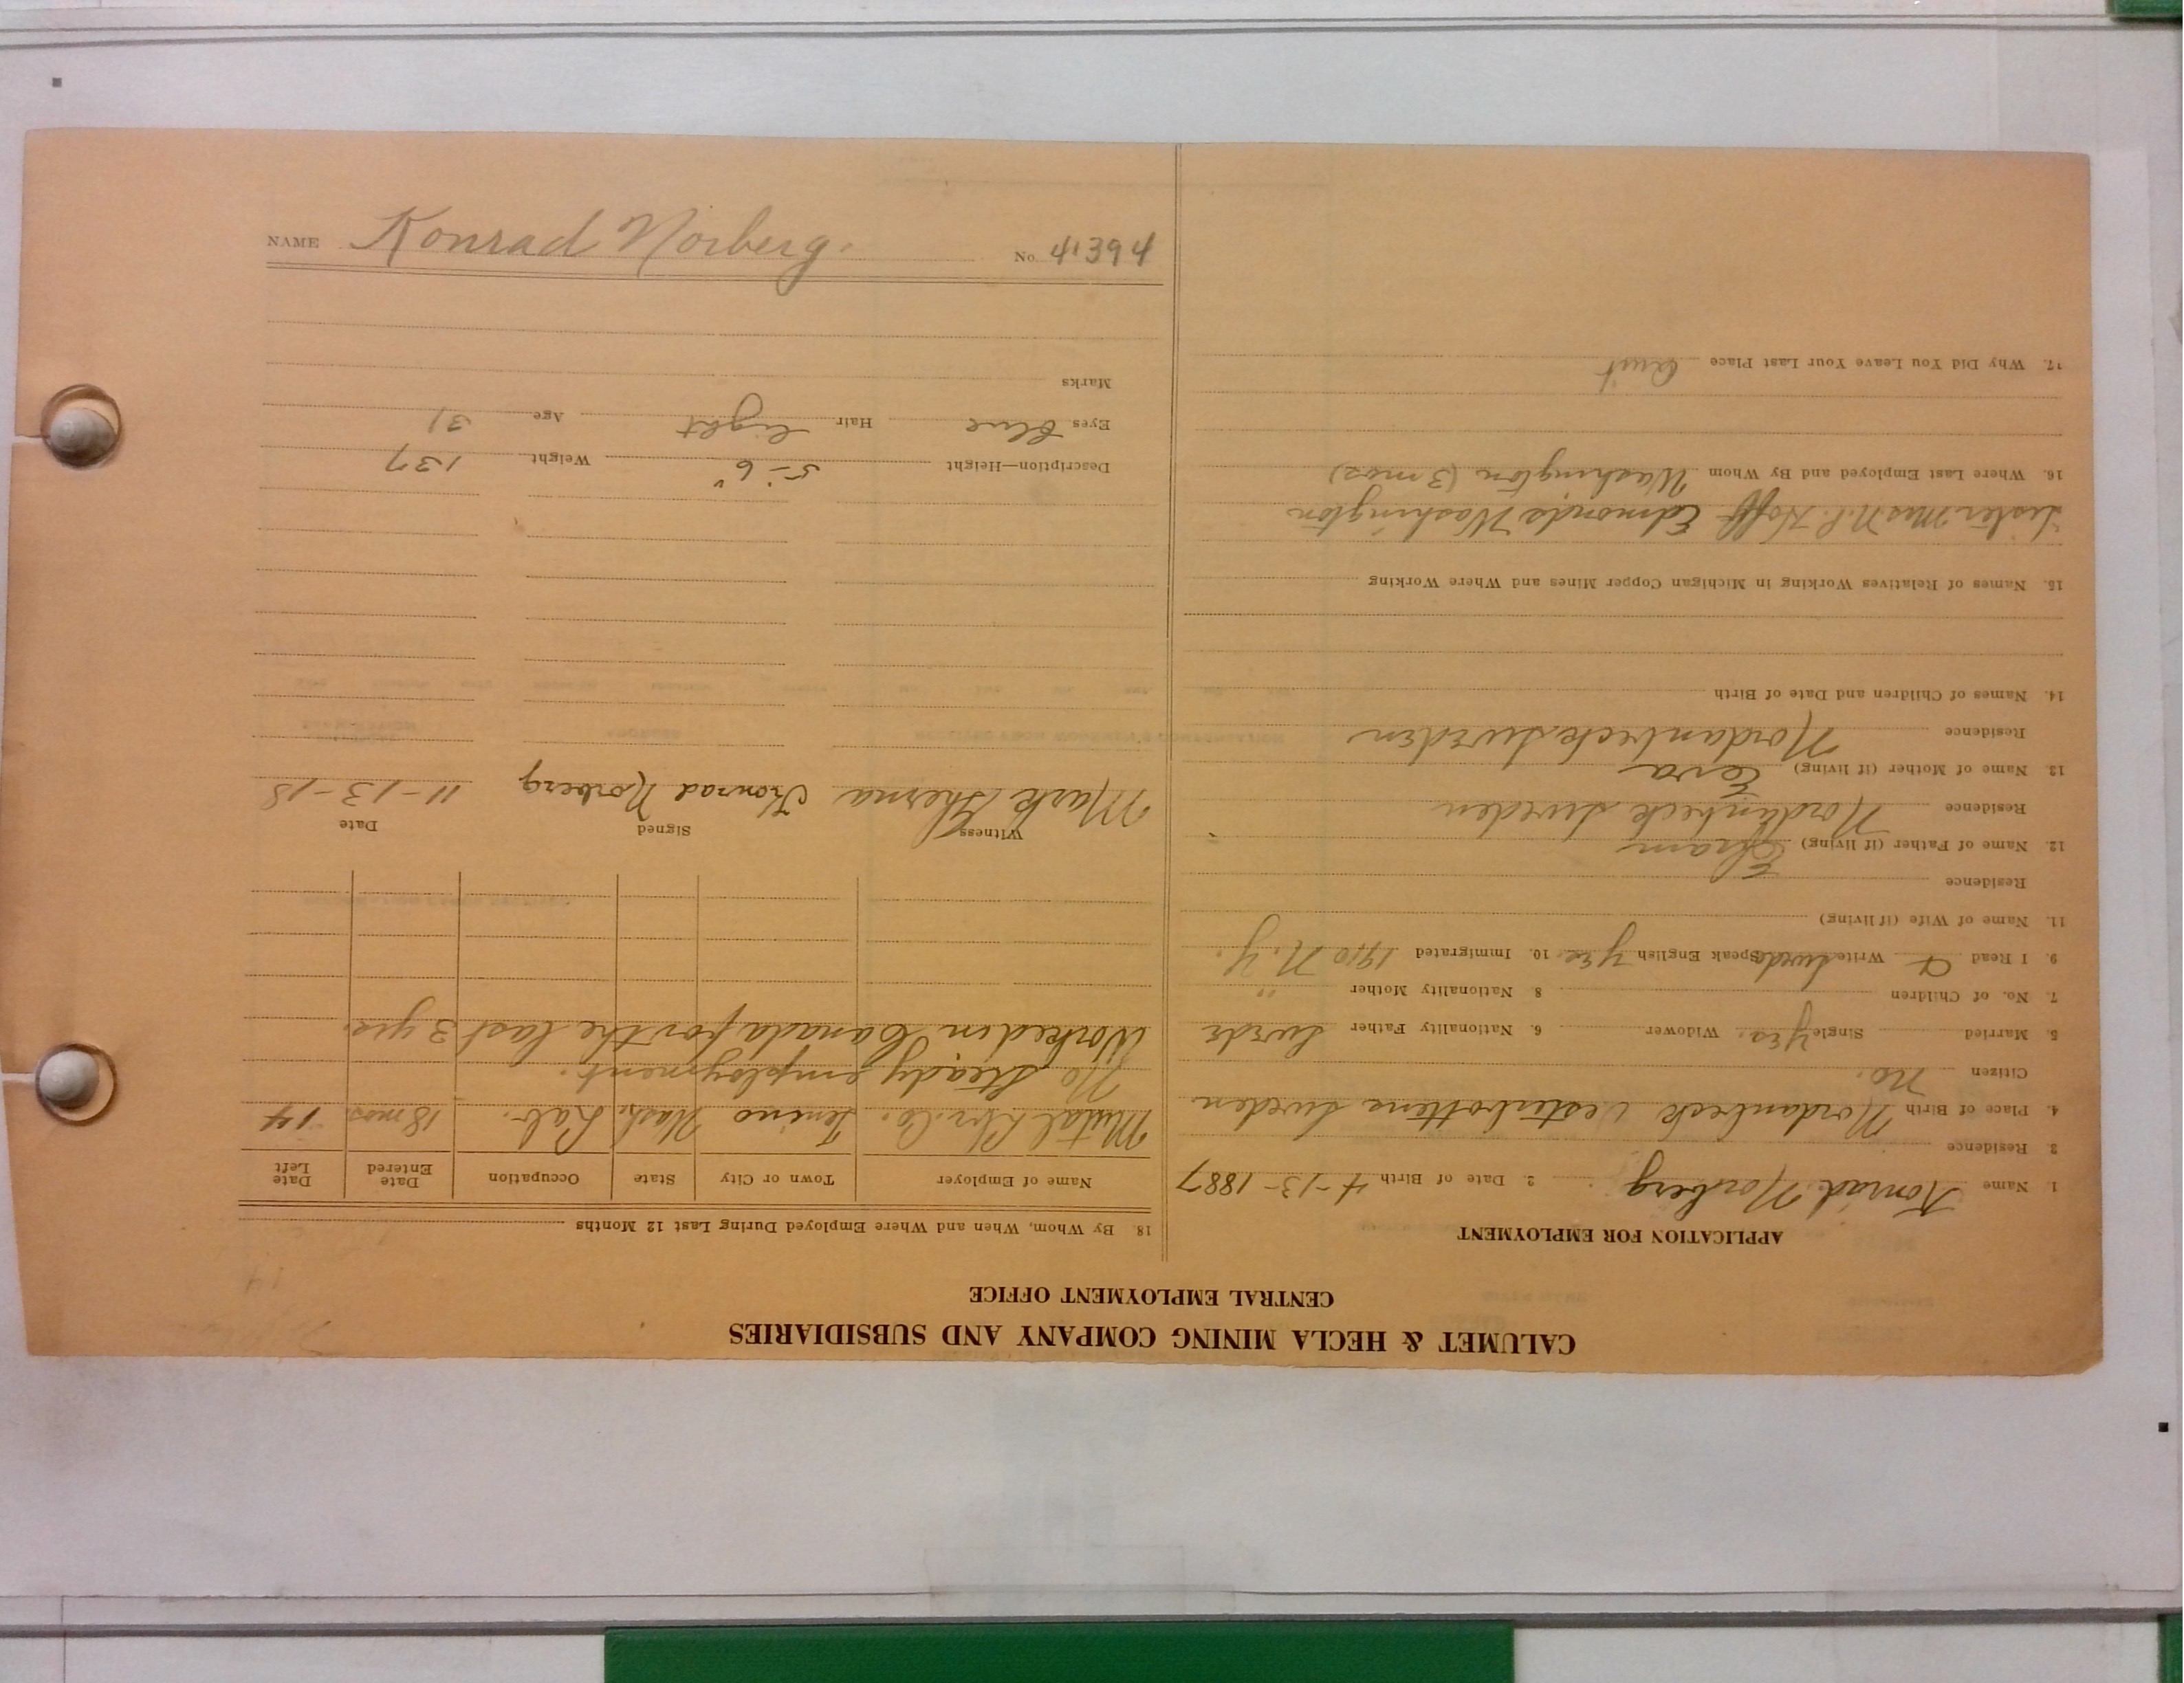 CALUMET & HECLA MINING COMPANY AND SUBSIDIARIES
CENTRAL EMPLOYMENT OFFICE
APPLICATION FOR EMPLOYMENT
1. Name Konrad Norberg 2. Date of Birth 4-13-1887
3. Residence
4. Place of Birth Nordanbeck Vesterbottens Sweden
Citizen no.
5. Married Single yes. Widower 6. Nationality Father Swede
7. No. of Children 8. Nationality Mother "
9. I Read & Write Swede Speak English yes 10. Immigrated 1910 N.Y.
11. Name of Wife (if living)
Residence
12. Name of Father (if living) Efram
Residence Nordanbeck Sweden
13. Name of Mother (if living) Eva
Residence Nordanbeck Sweden
14. Names of Children and Date of Birth
15. Names of Relatives Working in Michigan Copper Mines and Where Working
Sister Mrs N.P. Hoff Edmonds Washington
16. Where Last Employed and By Whom Washington (3 mos)
17. Why Did You Leave Your Last Place Quit
18. By Whom, When and Where Employed During Last 12 Months
Name of Employer Town or City State Occupation Date Entered Date Left
Mutal Lbr. Co. Tenino Wash. Lab. 18 mos. 14
No steady employment.
Worked in Canada for the last 3 yrs.
Witness Signed Date
Mark Konrad Norberg 11-13-18
Description—Height 5'-6" Weight 137
Eyes blue Hair light Age 31
Marks
NAME Konrad Norberg. No. 41394